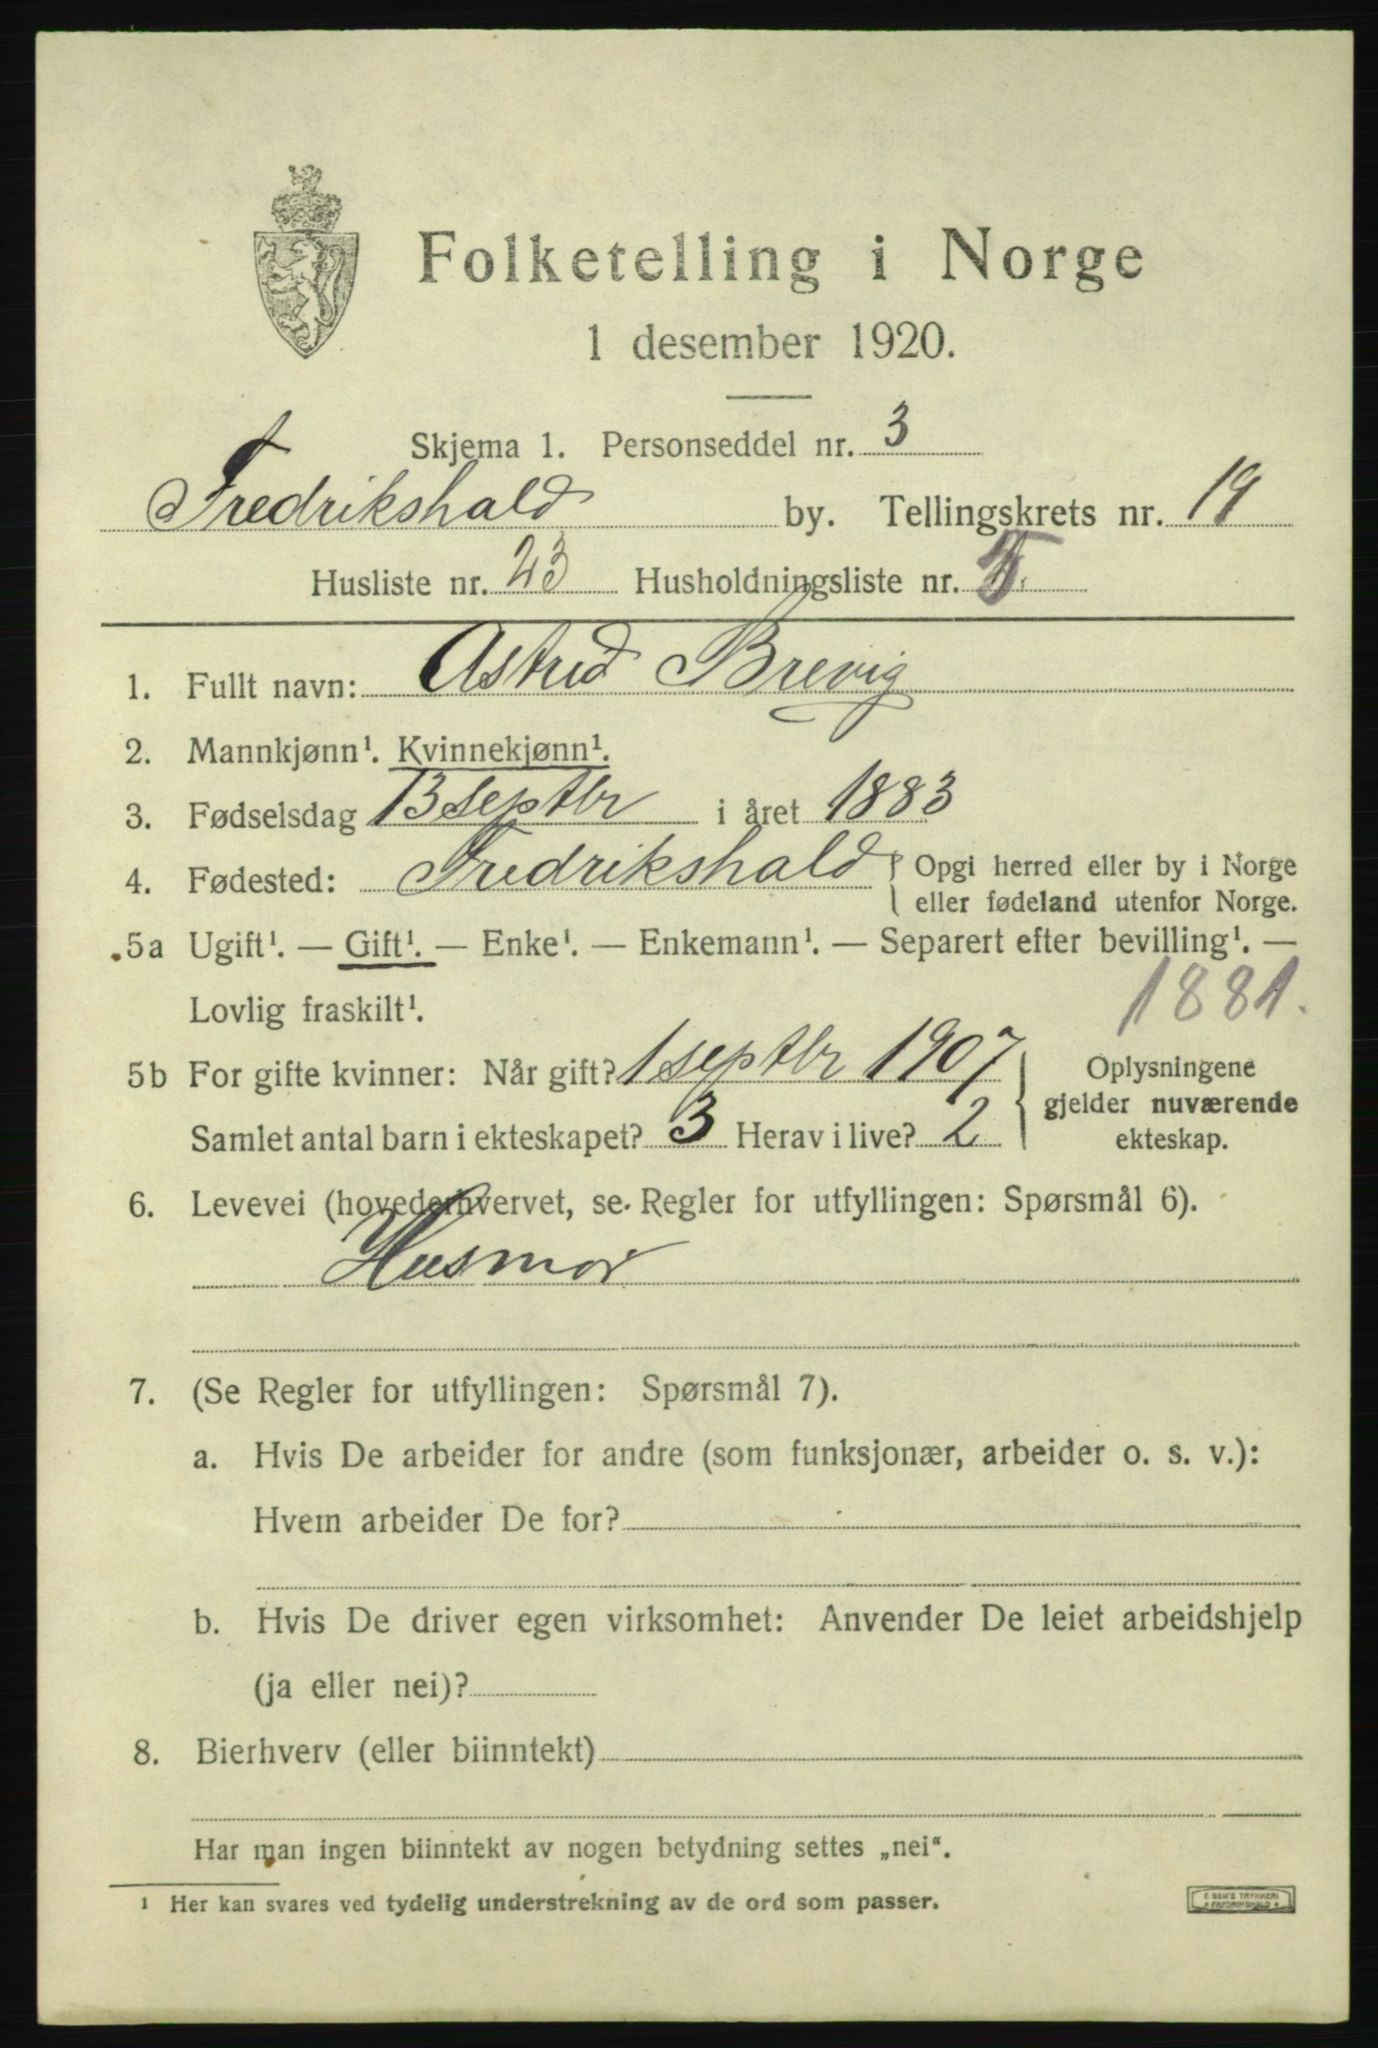 Folketelling i Norge
1 desember 1920.
Skjema 1. Personseddel nr. 3
Fredrikshald by. Tellingskrets nr. 19
Husliste nr. 23 Husholdningsliste nr.
1. Fullt navn: Astrid Brevig
2. Mannkjønn¹. Kvinnekjønn¹.
3. Fødselsdag 13 septbr i året 1883
4. Fødested: Fredrikshald { Opgi herred eller by i Norge
eller fødeland utenfor Norge.
5a Ugift¹. — Gift¹. — Enke¹. — Enkemann¹. — Separert efter bevilling¹. —
Lovlig fraskilt¹. 1881.
5b For gifte kvinner: Når gift? 1 septbr 1907 } Oplysningene
gjelder nuværende
Samlet antal barn i ekteskapet? 3 Herav i live? 2 ekteskap.
6. Levevei (hovederhvervet, se Regler for utfyllingen: Spørsmål 6).
Husmor
7. (Se Regler for utfyllingen: Spørsmål 7).
a. Hvis De arbeider for andre (som funksjonær, arbeider o. s. v.):
Hvem arbeider De for?
b. Hvis De driver egen virksomhet: Anvender De leiet arbeidshjelp
(ja eller nei)?
8. Bierhverv (eller biinntekt)
Har man ingen biinntekt av nogen betydning settes „nei“.
¹ Her kan svares ved tydelig understrekning av de ord som passer.